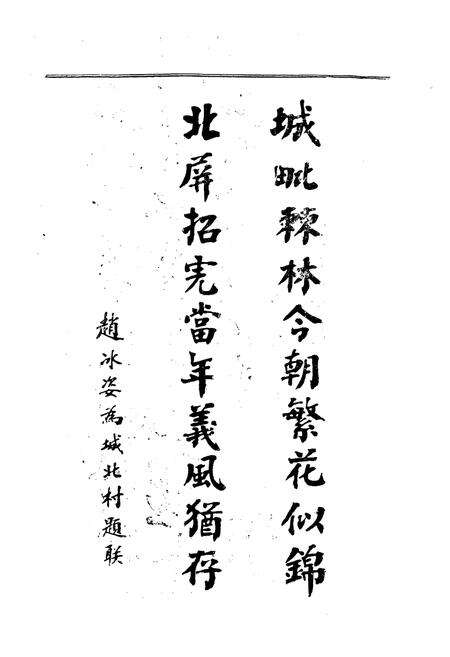 城毗棘林今朝繁花似錦
北屏招宪當年義風猶存
趙冰姿為城北村題联